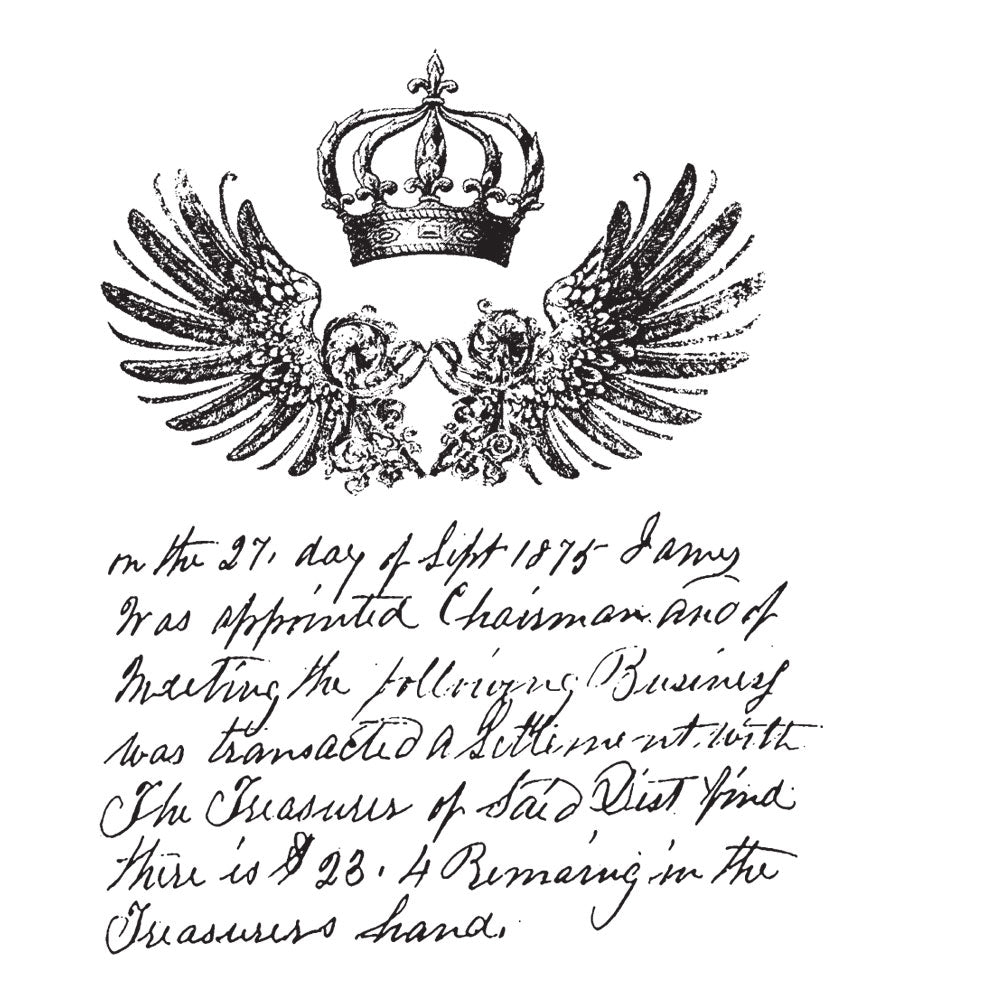 on the 27. day of Sept 1875 James
Was appointed Chairman and of
Meeting the following Business
was transacted A Settlement with
The Treasurer of Said Dist find
there is $ 23.4 Remaring in the
Treasurers hand.